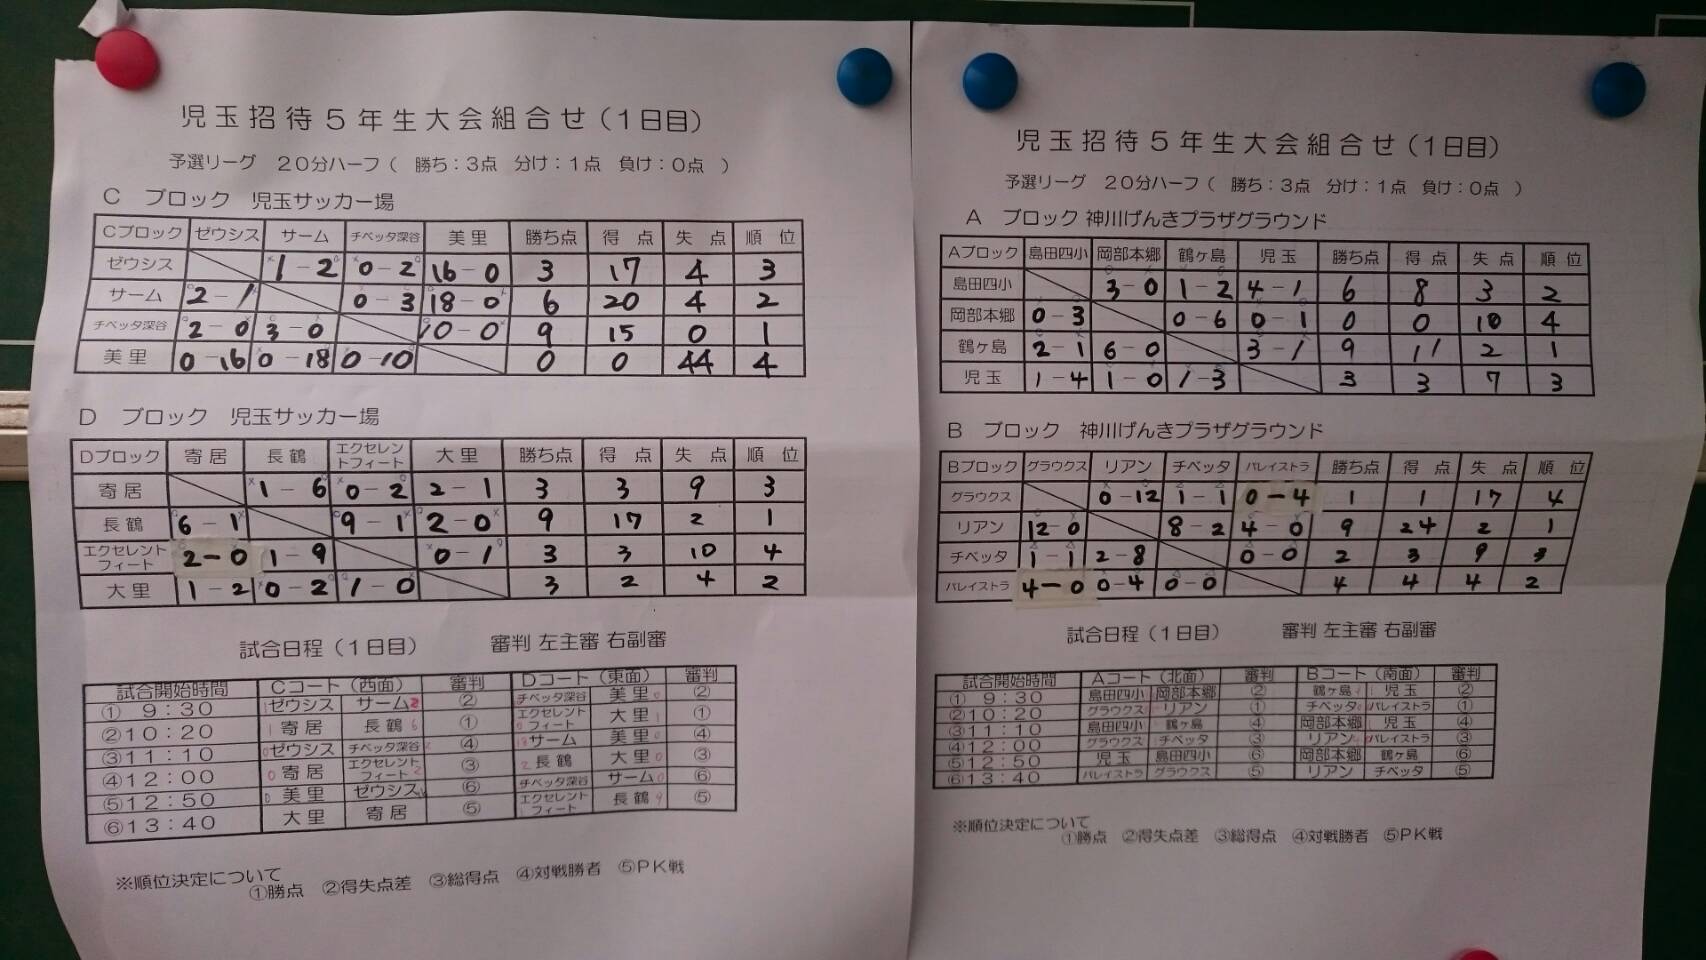 児玉招待５年生大会組合せ（１日目）
予選リーグ　２０分ハーフ（　勝ち：３点　分け：１点　負け：０点　）
Ｃ　ブロック　児玉サッカー場
Ｃブロック　ゼウシス　サーム　チベッタ深谷　美里　勝ち点　得　点　失　点　順　位
ゼウシス　1－2　0－2　16－0　3　17　4　3
サーム　2－1　0－3　18－0　6　20　4　2
チベッタ深谷　2－0　3－0　10－0　9　15　0　1
美里　0－16　0－18　0－10　0　0　44　4
Ｄ　ブロック　児玉サッカー場
Ｄブロック　寄居　長鶴　エクセレントフィート　大里　勝ち点　得　点　失　点　順　位
寄居　1－6　0－2　2－1　3　3　9　3
長鶴　6－1　9－1　2－0　9　17　2　1
エクセレントフィート　2－0　1－9　0－1　3　3　10　4
大里　1－2　0－2　1－0　3　2　4　2
試合日程（１日目）　審判 左主審 右副審
試合開始時間　Ｃコート（西面）　審判　Ｄコート（東面）　審判
①　９：３０　1　ゼウシス　サーム　2　②　チベッタ深谷　美里　0　②
②１０：２０　1　寄居　長鶴　6　①　0　エクセレントフィート　大里　1　①
③１１：１０　0　ゼウシス　チベッタ深谷　④　18　サーム　美里　0　④
④１２：００　0　寄居　エクセレントフィート　2　③　2　長鶴　大里　0　③
⑤１２：５０　0　美里　ゼウシス　⑥　チベッタ深谷　サーム　0　⑥
⑥１３：４０　大里　寄居　⑤　エクセレントフィート　長鶴　9　⑤
※順位決定について
①勝点　②得失点差　③総得点　④対戦勝者　⑤ＰＫ戦
児玉招待５年生大会組合せ（１日目）
予選リーグ　２０分ハーフ（　勝ち：３点　分け：１点　負け：０点　）
Ａ　ブロック 神川げんきプラザグラウンド
Ａブロック　島田四小　岡部本郷　鶴ヶ島　児玉　勝ち点　得　点　失　点　順　位
島田四小　3－0　1－2　4－1　6　8　3　2
岡部本郷　0－3　0－6　0－1　0　0　10　4
鶴ヶ島　2－1　6－0　3－1　9　11　2　1
児玉　1－4　1－0　1－3　3　3　7　3
Ｂ　ブロック　神川げんきプラザグラウンド
Ｂブロック　グラウクス　リアン　チベッタ　パレイストラ　勝ち点　得　点　失　点　順　位
グラウクス　0－12　1－1　0－4　1　1　17　4
リアン　12－0　8－2　4－0　9　24　2　1
チベッタ　1－1　2－8　0－0　2　3　9　3
パレイストラ　4－0　0－4　0－0　4　4　4　2
試合日程（１日目）　審判 左主審 右副審
試合開始時間　Ａコート（北面）　審判　Ｂコート（南面）　審判
①　９：３０　島田四小　岡部本郷　②　鶴ヶ島　児玉　②
②１０：２０　グラウクス　リアン　①　チベッタ　パレイストラ　①
③１１：１０　島田四小　鶴ヶ島　④　岡部本郷　児玉　④
④１２：００　グラウクス　チベッタ　③　リアン　パレイストラ　③
⑤１２：５０　児玉　島田四小　⑥　岡部本郷　鶴ヶ島　⑥
⑥１３：４０　パレイストラ　グラウクス　⑤　リアン　チベッタ　⑤
※順位決定について
①勝点　②得失点差　③総得点　④対戦勝者　⑤ＰＫ戦